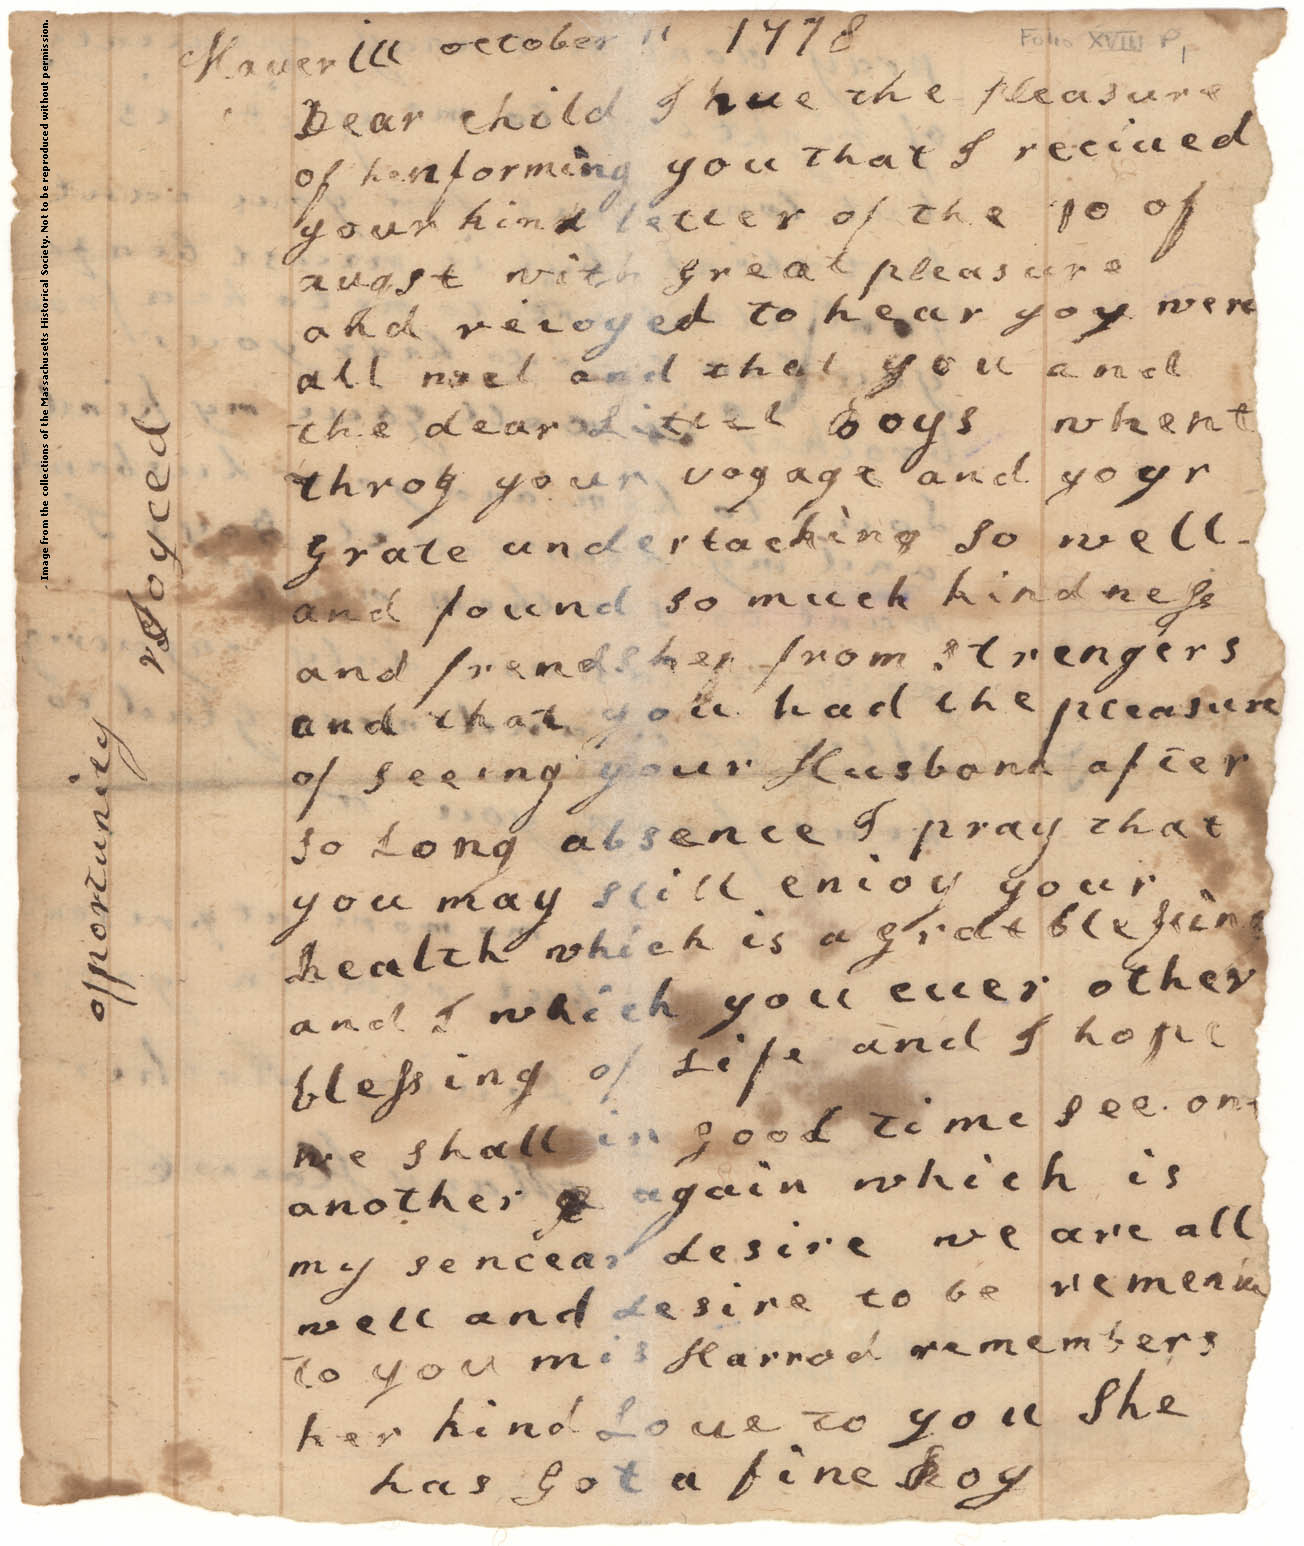 Haverill october 11 1778
Folio XVIII P 1
Dear child I hue the pleasure
of henforming you that I reciued
your kind letter of the 10 of
augst with great pleasure
and reioyed to hear yoy were
all wel and that you and
the dear Littel boys whent
throg your vogage and yoyr
grate undertacking so well
and found so much kindness
and frendshep from strengers
and that you had the pleasure
of seeing your Husband after
so Long absence I pray that
you may still enioy your
health which is a grat blessing
and I which you euer other
blessing of Life and I hope
we shall in good time see on
another again which is
my sencear desire we are all
well and desire to be
to you mis Harrod remembers
her kind Loue to you She
has got a fine boy
opportunity
reJoyced
Image from the collections of the Massachusetts Historical Society. Not to be reproduced without permission.